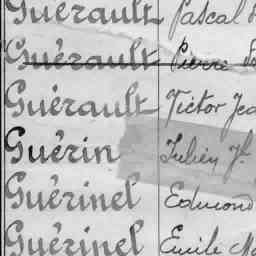 Guérault Pascal
Guérault Pierre
Guérault Victor
Guérin Julien
Guérinel Edmond
Guérinel Emile